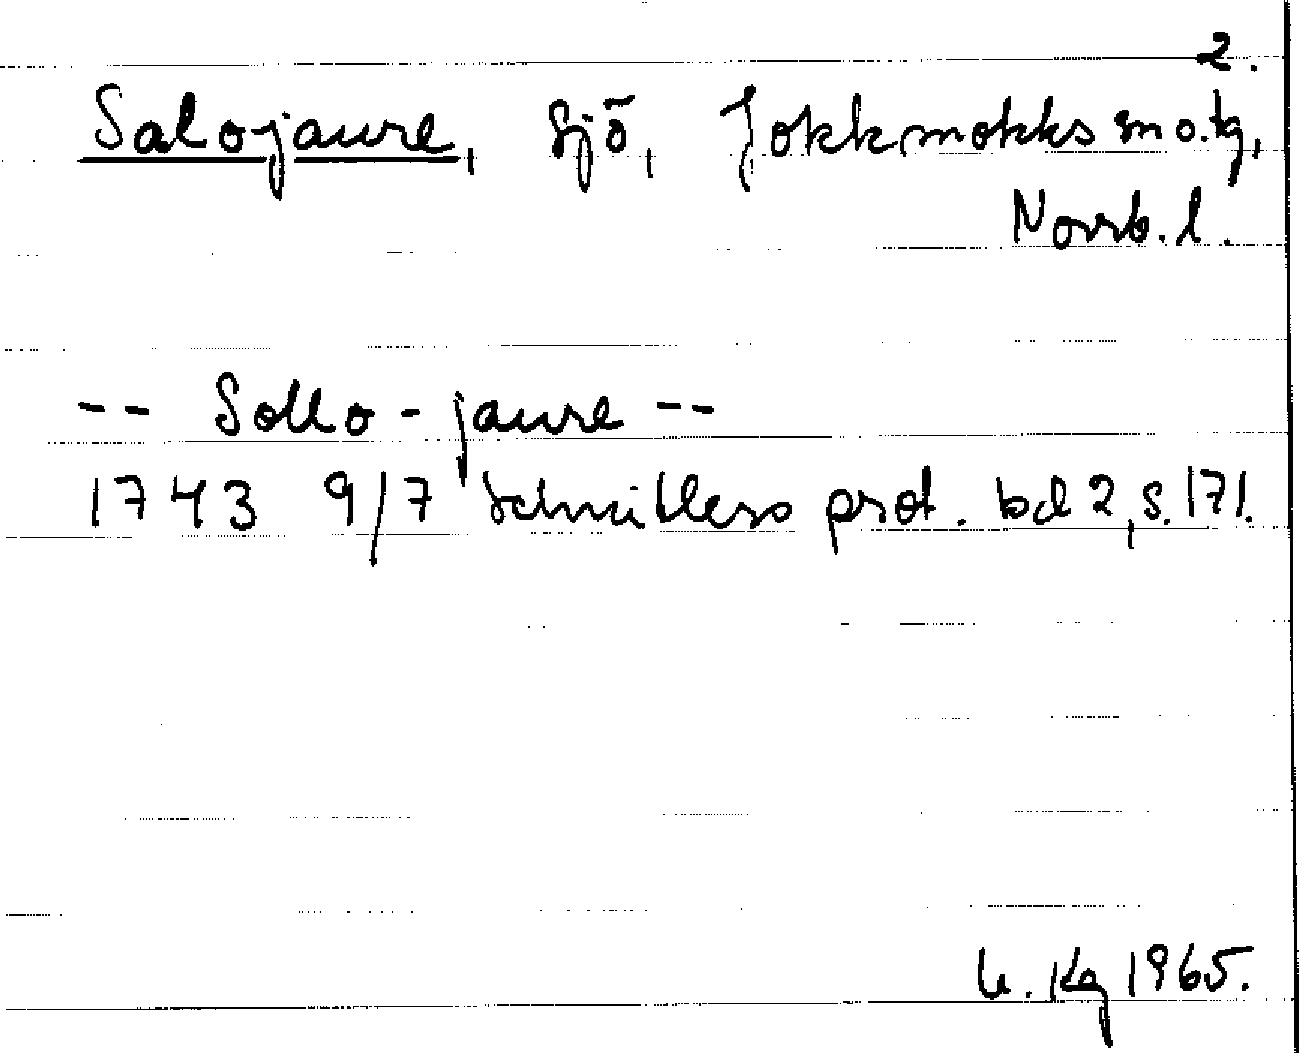 2.
Salojaure, sjö, Jokkmokks sn o. tg,
Norrb. l.
-- Sollo-jaure --
1743 9/7 Schnitlers prot. bd 2, s. 171.
U. Kg 1965.